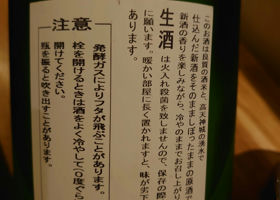 このお酒は良質の酒米と、高天神城の湧水で
仕込んだ新酒をそのままましぼったままの原酒で
新酒の香りを楽しみながら、冷やのままでお召し上がり
生酒は火入れ殺菌を致しませんので、保存の際
に願います。暖かい部屋に長く置かれますと、味が劣下
あります。
注意
発酵ガスによりフタが飛ぶことがあります。
栓を開けるときは酒をよく冷やして(0度ぐら
開けてください。
瓶を振ると吹き出すことがあります。